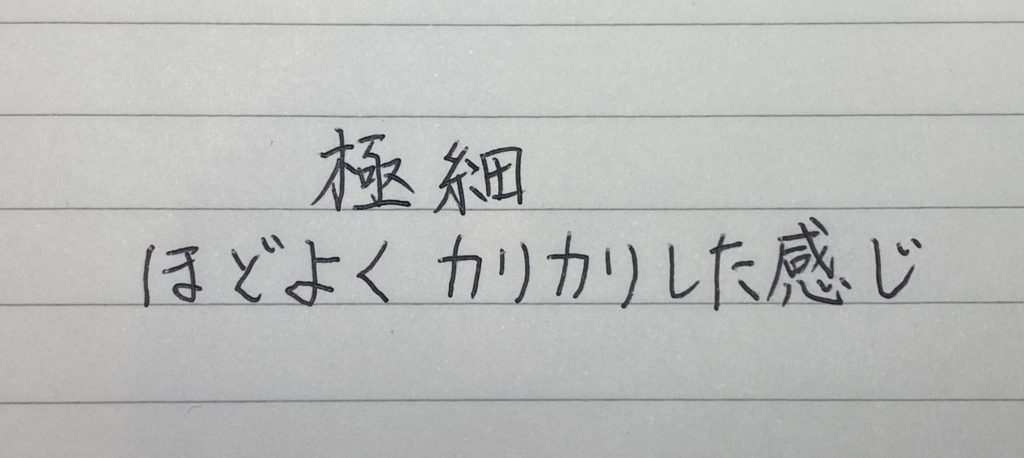 極細
ほどよくカリカリした感じ